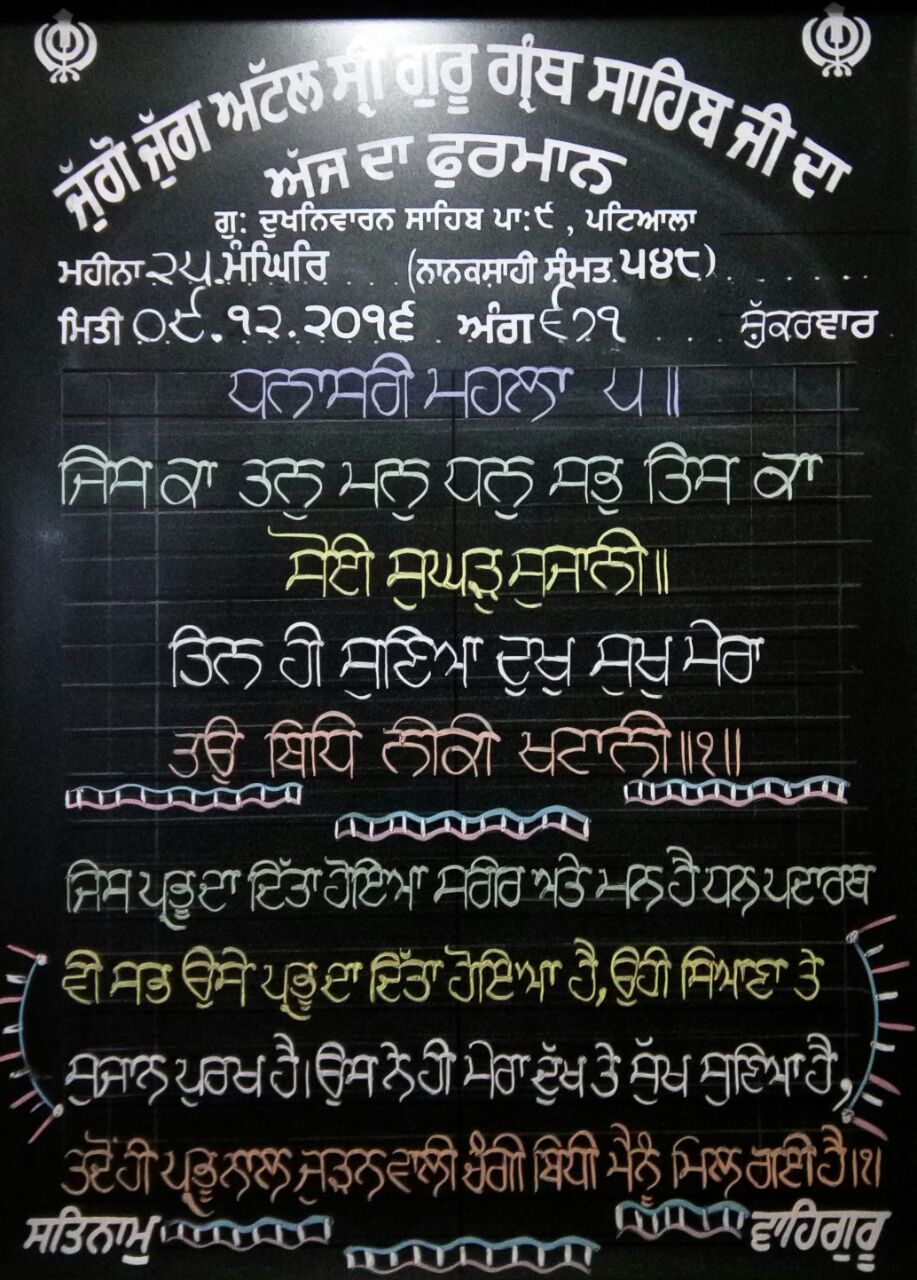 ਜੁੱਗੋ ਜੁੱਗ ਅਟੱਲ ਸ੍ਰੀ ਗੁਰੂ ਗ੍ਰੰਥ ਸਾਹਿਬ ਜੀ ਦਾ
ਅੱਜ ਦਾ ਫੁਰਮਾਨ
ਗੁ: ਦੁਖਨਿਵਾਰਨ ਸਾਹਿਬ ਪਾ:੯ , ਪਟਿਆਲਾ
ਮਹੀਨਾ ੨੫ ਮੰਘਿਰਿ (ਨਾਨਕਸਾਹੀ ਸੰਮਤ ੫੪੮)
ਮਿਤੀ ੦੯.੧੨.੨੦੧੬ ਅੰਗ ੬੭੧ ਸ਼ੁੱਕਰਵਾਰ
ਧਨਾਸਰੀ ਮਹਲਾ ੫॥
ਜਿਸ ਕਾ ਤਨੁ ਮਨੁ ਧਨੁ ਸਭੁ ਤਿਸ ਕਾ
ਸੋਈ ਸੁਘੜੁ ਸੁਜਾਨੀ॥
ਤਿਨ ਹੀ ਸੁਣਿਆ ਦੁਖੁ ਸੁਖੁ ਮੇਰਾ
ਤਉ ਬਿਧਿ ਨੀਕੀ ਖਟਾਨੀ॥੧॥
ਜਿਸ ਪ੍ਰਭੂ ਦਾ ਦਿੱਤਾ ਹੋਇਆ ਸਰੀਰ ਅਤੇ ਮਨ ਹੈ ਧਨ ਪਦਾਰਥ
ਵੀ ਸਭ ਉਸੇ ਪ੍ਰਭੂ ਦਾ ਦਿੱਤਾ ਹੋਇਆ ਹੈ, ਉਹੀ ਸਿਆਣਾ ਤੇ
ਸੁਜਾਨ ਪੁਰਖ ਹੈ। ਉਸ ਨੇ ਹੀ ਮੇਰਾ ਦੁੱਖ ਤੇ ਸੁੱਖ ਸੁਣਿਆ ਹੈ,
ਤਦੋਂ ਹੀ ਪ੍ਰਭੂ ਨਾਲ ਜੁੜਨ ਵਾਲੀ ਚੰਗੀ ਬਿਧੀ ਮੈਨੂੰ ਮਿਲ ਗਈ ਹੈ।੧।
ਸਤਿਨਾਮੁ ਵਾਹਿਗੁਰੂ